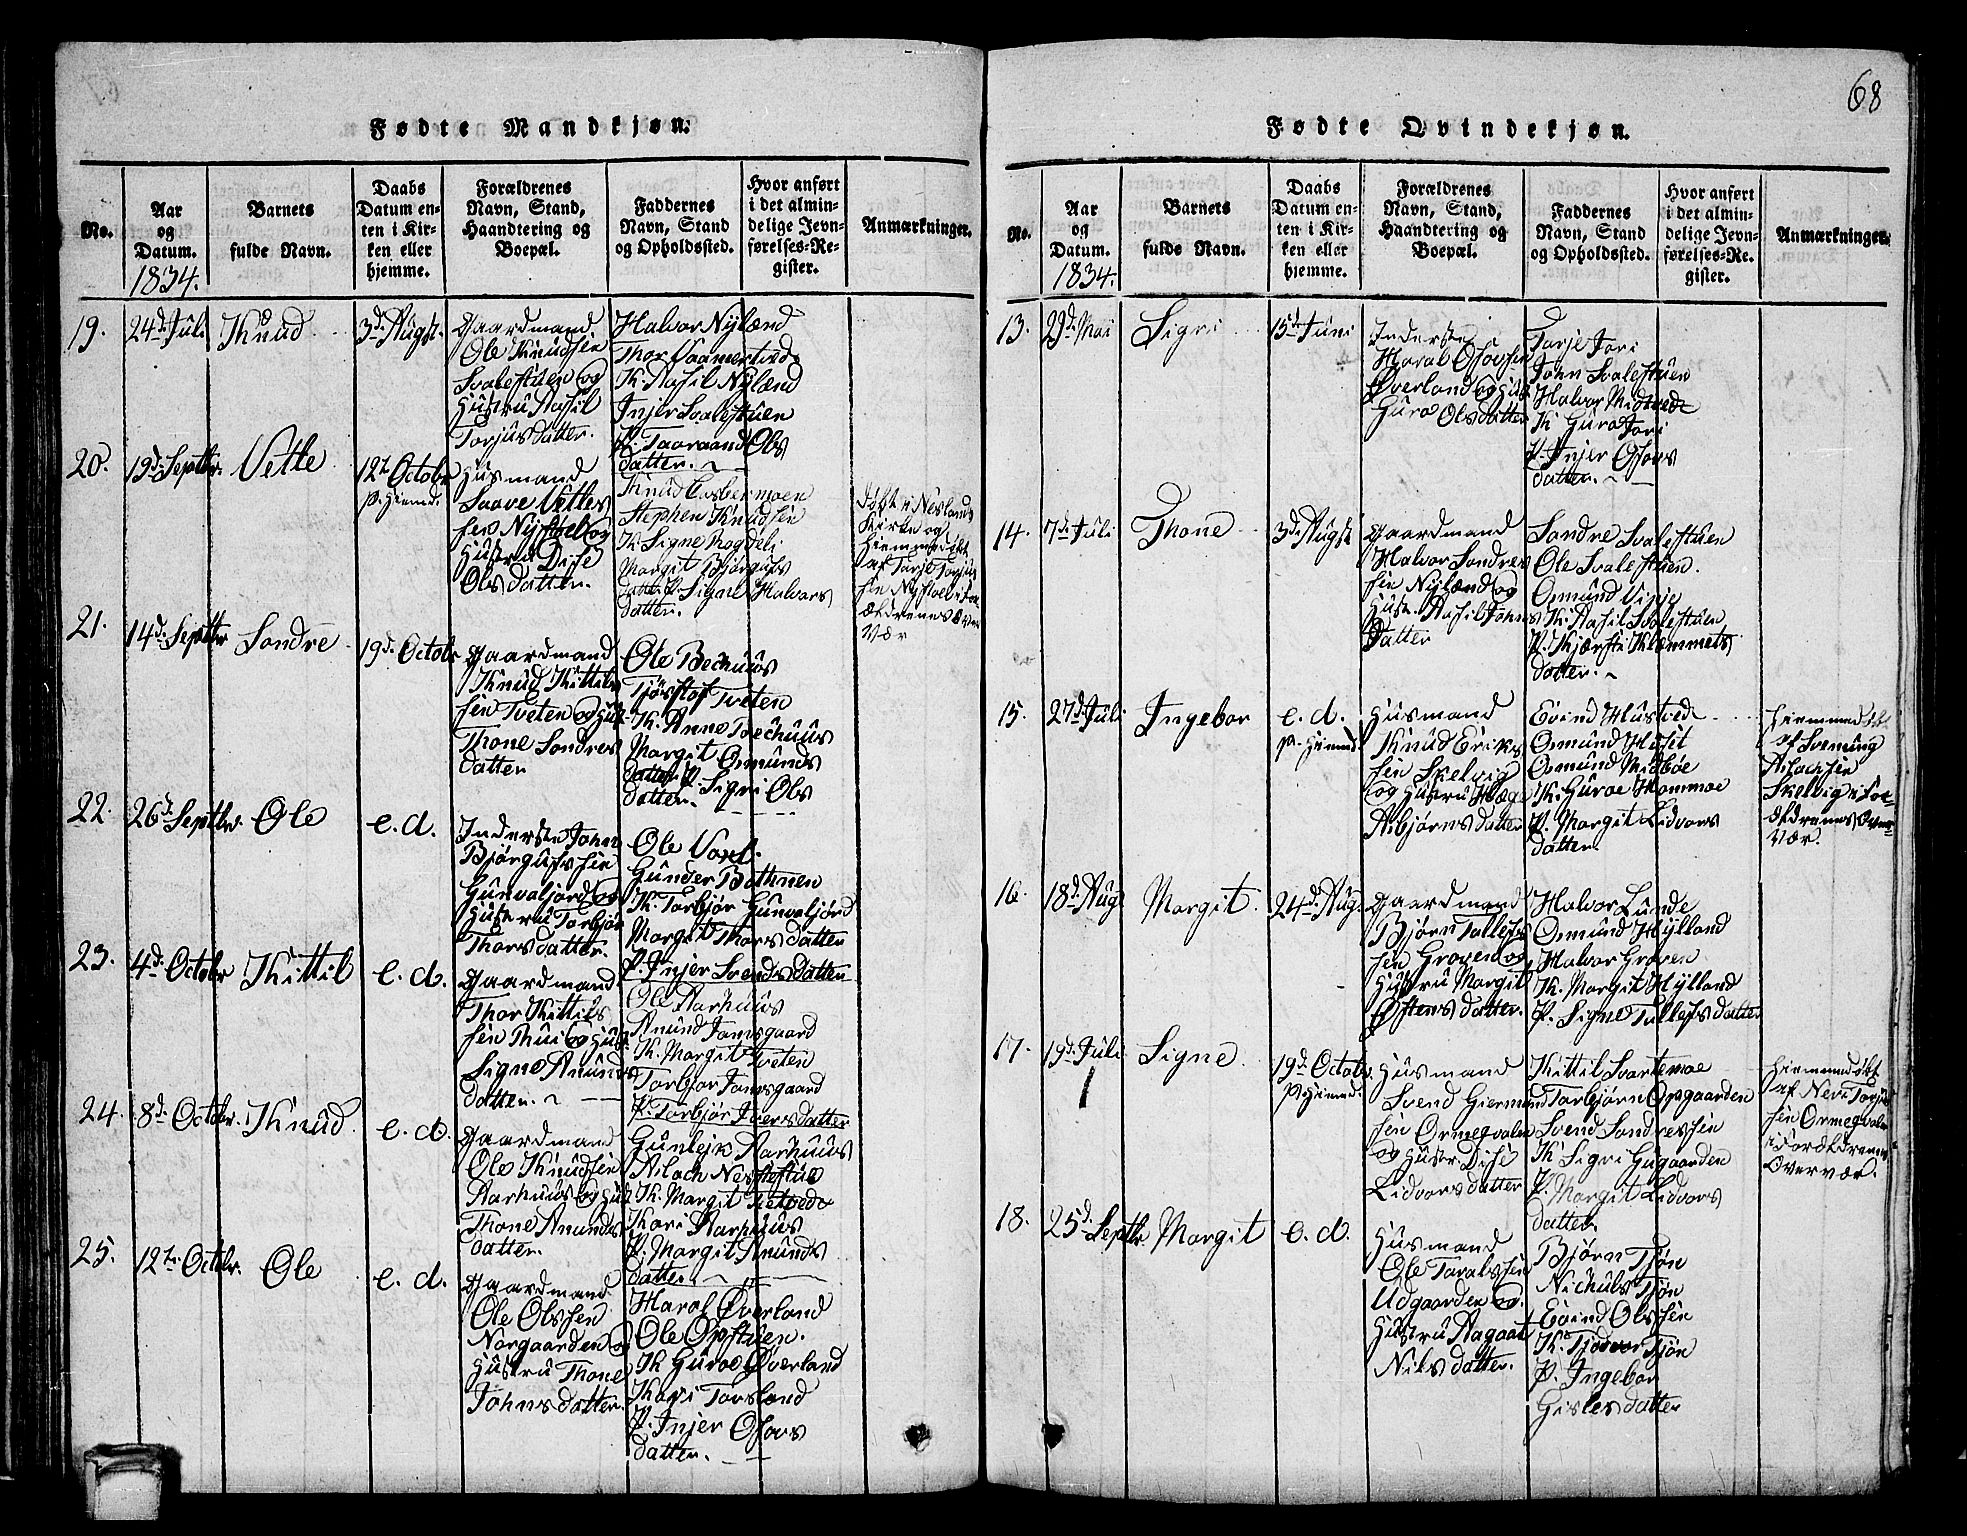 68
Fødte Mandkjøn.
No.
Aar
og
Datum.
1834.
Barnets
fulde Navn.
Daabs
Datum en-
ten i Kir-
ken eller
hjemme.
Forældrenes
Navn, Stand,
Haandtering og
Boepæl.
Faddernes
Navn, Stand
og Opholdssted.
Hvor anført
i det almin-
delige Jevn-
førelses-Re-
gister.
Anmærkninger.
19. 24d Juli Knud 3d Augst.
Gaardmand
Ole Knudsen
Svalestuen og
Hustru Aasil
Torjusdatter.
Halvor Nylænd
Thor Vaamertved
K. Aasil Nylænd
Injer Svalestuen
P. Taaraand Ols
datter.
20. 19d Septbr. Vetle 12t Octobr
P. Hiemd.
Husmand
Saave Vetles
sen Nystoel og
Hustru Dise
Olsdatter.
Knud
Stephen Knudsen
K. Signe Mogdeli
Margit Bjørgufs
datter P. Signe Halvors
datter.
Døbt i Neslands
Kirke og
Hiemmedøbt
af Tarje Torjus
sen Nystoel i For
ældrenes Over
vær
21. 14d Septbr Sondre 19d Octobr
Gaardmand
Knud Kittils
sen Tveten og Hust.
Thone Sondres
datter
Ole Bechuus
Tjøstof Tveten
K. Anne Bechuus
Margit Ormunds
datter P. Sigri Ols
datter.
22. 26d Septbr. Ole e. d.
Inderste John
Bjørgufssen
Gunvaljord og
Hustru Torbjør
Thorsdatter.
Ole Vaxl.
Gunder Bothnen
K. Torbjør Gunvaljord
Margit Thorsdatter
P. Injer Svendsdatter
23. 4d Octobr Kittil e. d.
Gaardmand
Thor Kittils
sen Thui og Hust.
Signe Anunds
datter.
Ole Aarhuus
Anund Jamsgaard
K. Margit Tveten
Torbjør Jamsgaard
P. Torbjør Iversdatter
24. 8d Octobr. Knud e. d.
Gaardmand
Ole Knudsen
Aarhuus og Hust
Thone Anunds
datter.
Gunleik Aarhuus
Aslach Nesteftue
K. Margit Tietvedt
Kari Aarhuus
P. Margit Anunds
datter
25. 12te Octbr. Ole e. d.
Gaardmand
Ole Olssen
Norgaarden og
Hustru Thone
Johnsdatter.
Haral Øverland
Ole Opstuen.
K. Guroe Øverland
Kari Torsland
P. Injer Osovs
datter.
Fødte Qvindekjøn.
No.
Aar
og
Datum.
1834.
Barnets
fulde Navn.
Daabs
Datum en-
ten i Kir-
ken eller
hjemme.
Forældrenes
Navn, Stand,
Haandtering og
Boepæl.
Faddernes
Navn, Stand
og Opholdssted.
Hvor anført
i det almin-
delige Jevn-
førelses-Re-
gister.
Anmærkninger.
13. 29d Mai Sigri 15d Juni
Inderste
Haral Osovsen
Øverland og Hust
Guro Olsdatter
Tarje Jori
John Svalestuen
Halvor Midtvedt
K. Guro Jori
P. Injer Osovs
datter.
14. 7d Juli Thone 3d Augst
Gaardmand
Halvor Sondres
sen Nylænd og
Hust. Aasil Johns
datter
Sondre Svalestuen
Ole Svalestuen.
Ormund Vinje
K. Aasil Svalestuen
P. Kjersti Klemmets
datter.
15. 27d Juli Ingebor e. d.
P. Hiemd
Husmand
Knud Eriks
sen Skelvig
og Hustru Hæge
Asbjørnsdatter
Eivind Hustved
Ormund Hosit
Ormund Midbøe
K. Guroe Hommoe
P. Margit Lidvors
datter.
Hiemmedøbt
af Svenung
Aslachsen
Skelvig i For
ældrenes Over
vær.
16. 18d Aug Margit. 24d Aug.
Gaardmand
Bjørn Tallefs
sen Groven og
Hustru Margit
Østensdatter.
Halvor Lunde
Ormund Hylland
Halvor Groven
K. Margit Hylland
P. Signe Tallefsdatter
17. 19d Juli Signe 19d Octobr.
P. Hiemd.
Husmand
Svend Giermund
sen Ormegvalen
og Hustr Dise
Lidvorsdatter
Kittil Svartemoe
Torbjørn Opgaarden
Svend Sondressen
K. Sigri Gugaarden
P. Margit Lidvors
datter
Hiemmedøbt
af Neri Torjus
sen Ormegvalen
i Forældrenes
Overvær.
18. 25d Septbr. Margit e. d.
Husmand
Ole Taralssen
Udgaarden og
Hustru Aagaat
Nilsdatter.
Bjørn Tjøn
Nichuls Tjøn
Eivind Olssen
K. Tjodvor Tjøn
P. Ingebor
Gislesdatter